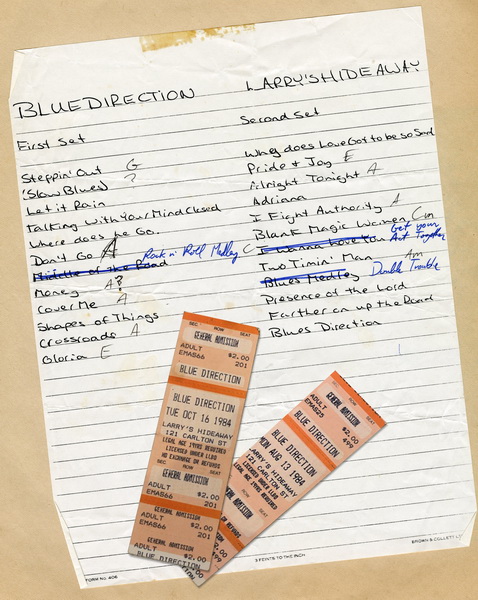 BLUE DIRECTION
LARRY'S HIDEAWAY
First Set
Steppin' Out G
(Slow Blues) ?
Let it Rain
Talking With Your Mind Closed
Where does he Go.
Don't Go A
Middle of the Road Rock n' Roll Medley C
Money A?
Cover Me A
Shapes of Things
Crossroads A
Gloria E
Second Set
Why does Love Got to be so Sad
Pride & Joy E
Alright Tonight A
Adriana
I Fight Authority A
Blank Magic Women Cm
I Wanna Love You Get your Act Together
Two Timin' Man Am
Blues Medley Double Trouble
Presence of the Lord
Farther on up the Road
Blues Direction
SEC ROW SEAT
GENERAL ADMISSION
ADULT $2.00
EMAS66 201
BLUE DIRECTION
BLUE DIRECTION
TUE OCT 16 1984
LARRY'S HIDEAWAY
121 CARLTON ST
LEGAL AGE I9YRS REQUIRED
LICENSED UNDER LLBO
NO EXCHANGE OR REFUNDS
SEC ROW SEAT
GENERAL ADMISSION
ADULT $2.00
EMAS66 201
GENERAL ADMISSION
ADULT $2.00
EMAS66 201
BLUE DIRECTION
ROW SEAT
GENERAL ADMISSION
ADULT $2.00
EMAS25 499
BLUE DIRECTION
BLUE DIRECTION
MON AUG 13 1984
LARRY'S HIDEAWAY
121 CARLTON ST
LEGAL AGE I9YRS REQUIRED
LICENSED UNDER LLBO
OR REFUNDS
GENERAL ADMISSION
$2.00
FORM NO. 406
3 FEINTS TO THE INCH